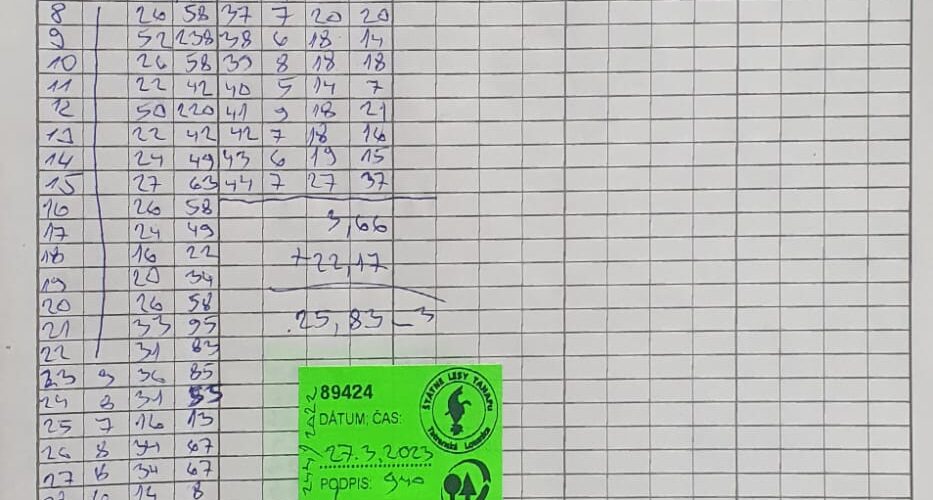 8 26 58 37 7 20 20
9 52 238 38 6 18 14
10 26 58 39 8 18 18
11 22 42 40 5 14 7
12 50 220 41 9 18 21
13 22 42 42 7 18 16
14 24 49 43 6 19 15
15 27 63 44 7 27 37
16 26 58
17 24 49 3,66
18 16 22 +22,17
19 20 34
20 26 58
21 33 95 25,83
22 31 83
23 9 36 85
24 8 31 55
25 7 16 13
26 8 34 67
27 8 34 67
14 8
89424
DÁTUM, ČAS:
27.3.2023
PODPIS: 940
ŠTÁTNE LESY TANAPU
Tatranská Lomnica